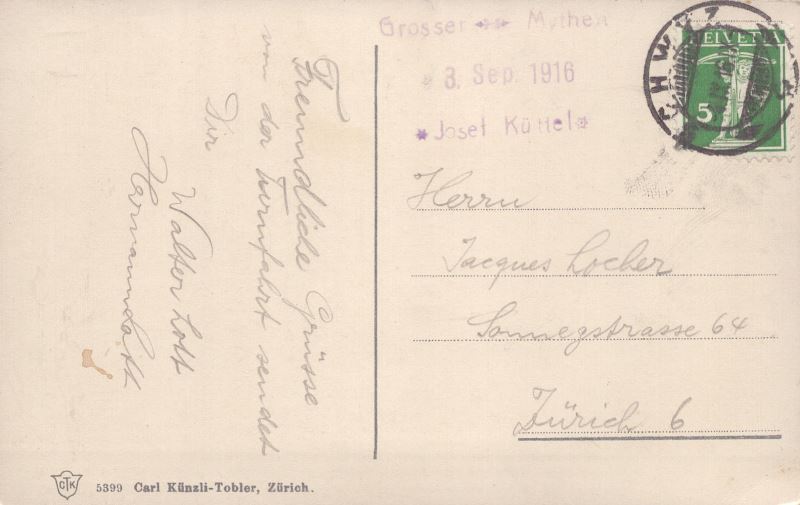 Grosser Mythen
3. Sep. 1916
* Josef Küttel *
HELVETIA
5
SCHWYZ
Freundliche Grüsse
von der Turnfahrt sendet
Dir
Walter Lott
Herrn
Jacques Locher
Sonnegstrasse 64
Zürich 6
CTK
5399 Carl Künzli-Tobler, Zürich.